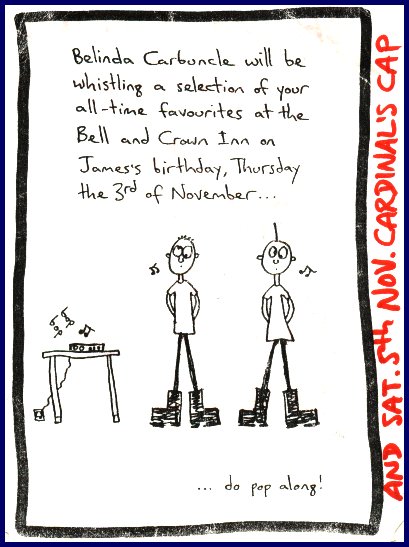 Belinda Carbuncle will be
whistling a selection of your
all-time favourites at the
Bell and Crown Inn on
James's birthday, Thursday
the 3rd of November...
... do pop along!
AND SAT. 5th NOV. CARDINAL'S CAP